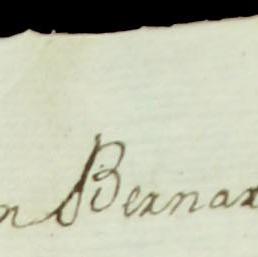 n Bernar